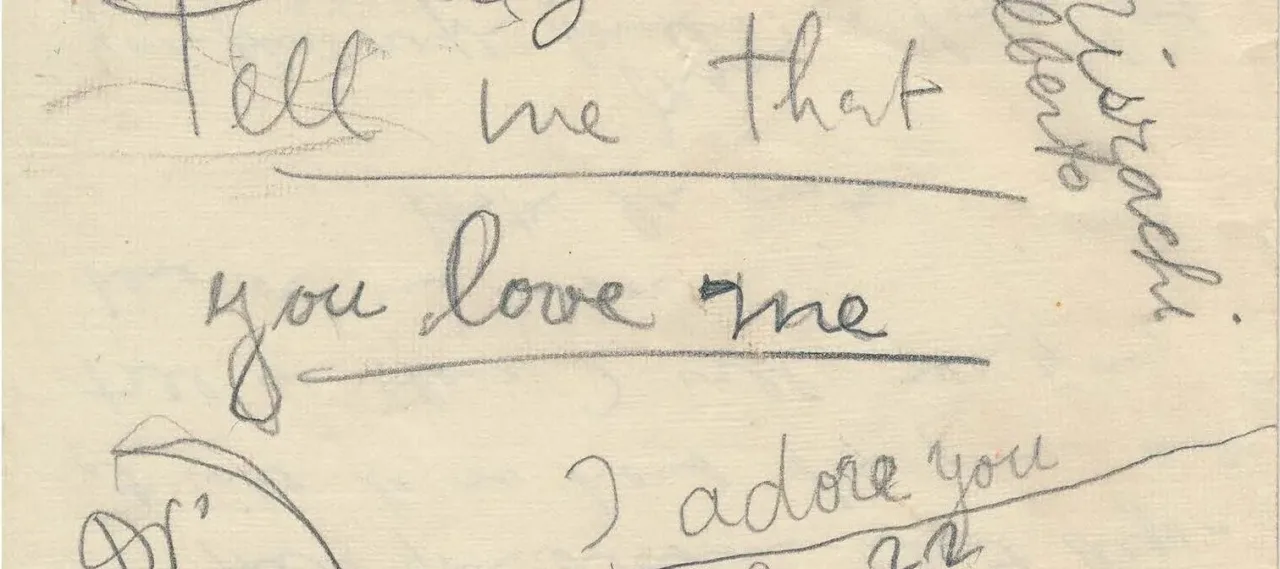 Tell me that
you love me
I adore you
22
Misrachi